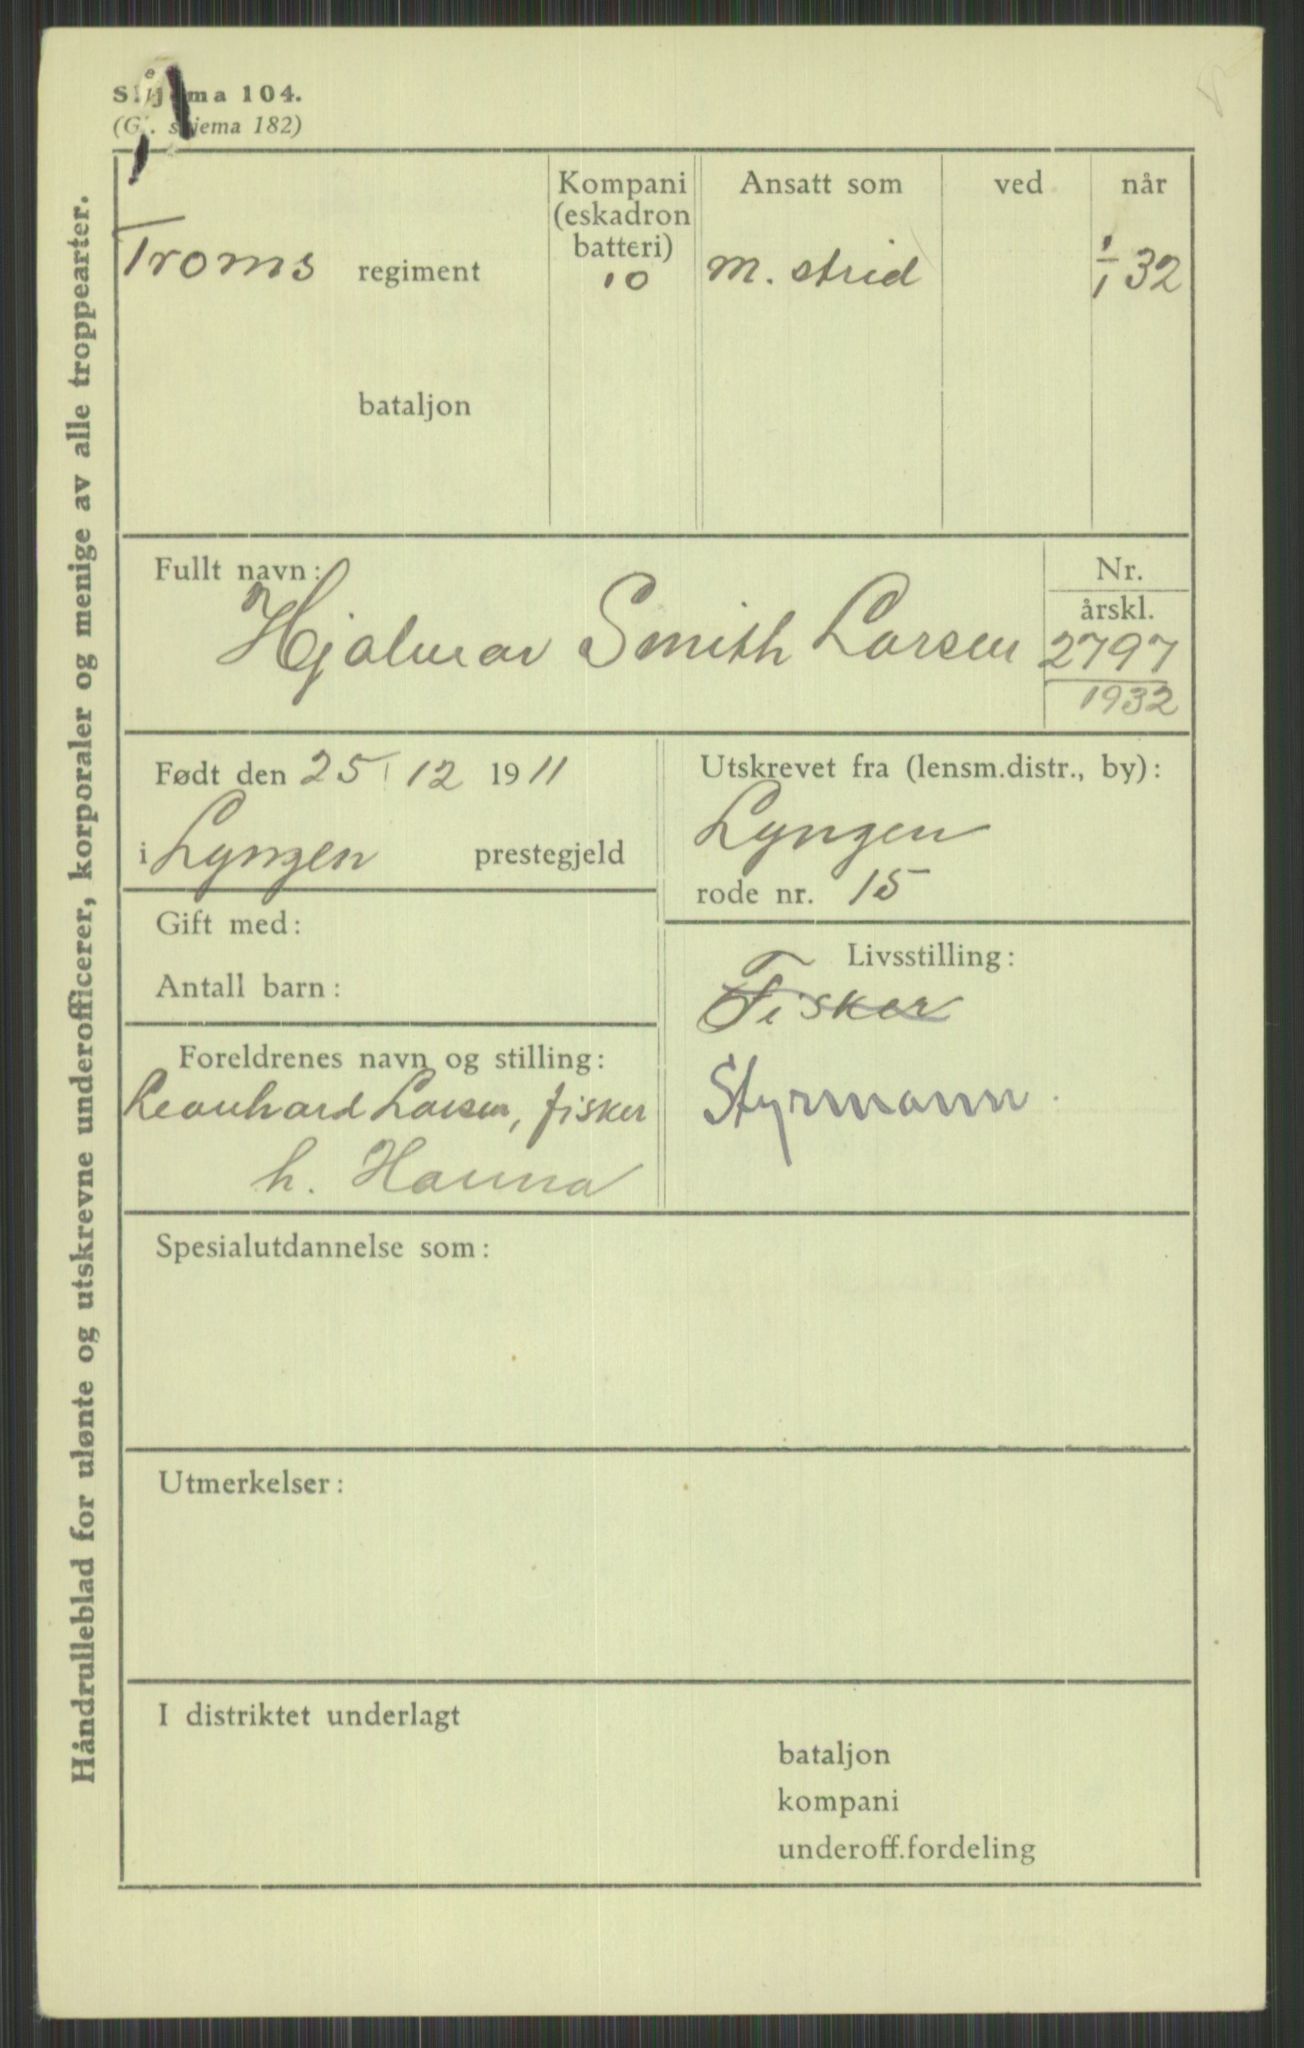 Skjema 104.
(Gl. skjema 182)
Håndrulleblad for ulønte og utskrevne underofficerer, korporaler og menige av alle troppearter.
Kompani (eskadron batteri) Ansatt som ved når
Troms regiment 10 m. strid 1/1 32
bataljon
Fullt navn: Nr.
årskl.
Hjalmar Smith Larsen 2797
1932
Født den 25/12 1911
i Lyngen prestegjeld
Utskrevet fra (lensm.distr., by):
Lyngen
rode nr. 15
Gift med:
Antall barn:
Livsstilling:
Fisker
Styrmann.
Foreldrenes navn og stilling:
Leonhard Larsen, fisker
h. Hanna
Spesialutdannelse som:
Utmerkelser:
I distriktet underlagt
bataljon
kompani
underoff.fordeling